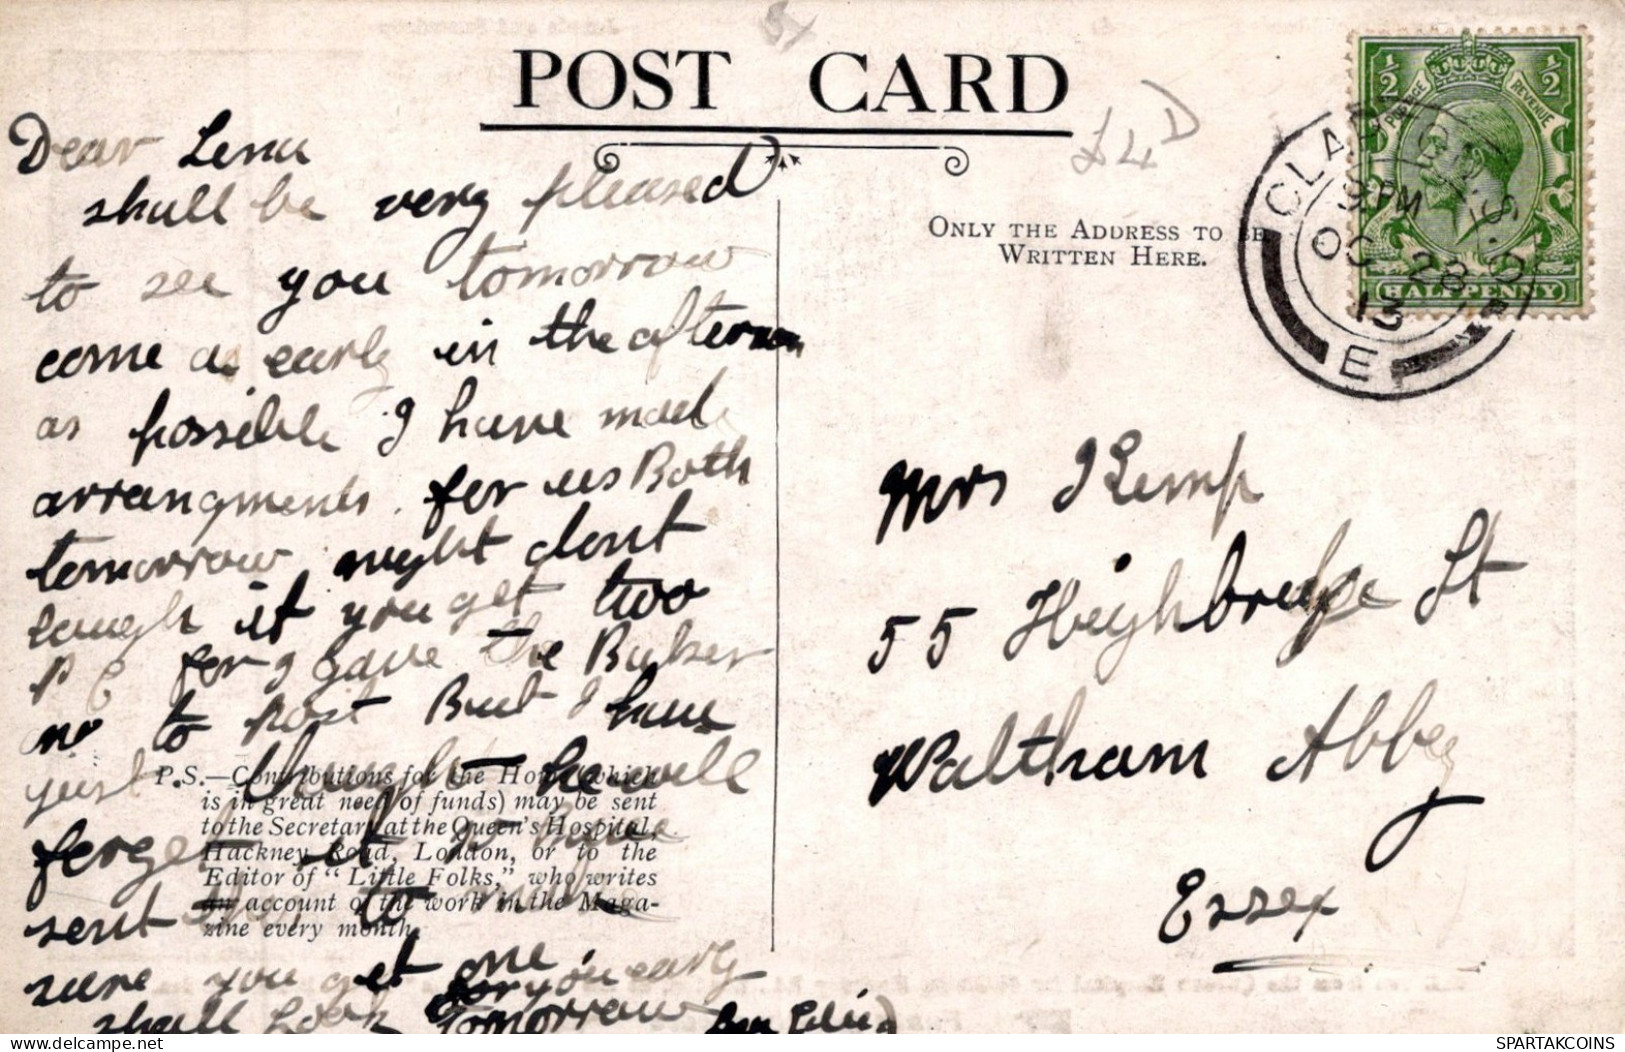 POST CARD
Dear Lena
shall be very pleased
to see you tomorrow
come as early in the afternoon
as possible I have made
arrangments for us Both
tomorrow night dont
laugh if you get two
P C for I gave the Butcher
to post But I have
just thought he will
forget it so have
sent to make
sure you get one
shall look for you early
tomorrow
P.S.—Contributions for the Home (which
is in great need of funds) may be sent
to the Secretary at the Queen's Hospital,
Hackney Road, London, or to the
Editor of "Little Folks," who writes
an account of the work in the Maga-
zine every month.
£4
ONLY THE ADDRESS TO BE
WRITTEN HERE.
½ ½
POSTAGE REVENUE
HALFPENNY
CLAPTON S.O.
9 PM
OC 28
13
E
Mrs Kemp
55 Highbridge St
Waltham Abbey
Essex
www.delcampe.net
SPARTAKCOINS